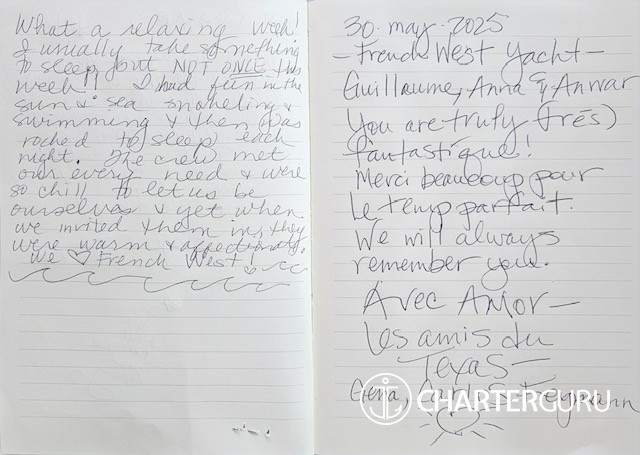 What a relaxing week!
I usually take something
to sleep but NOT ONCE this
week!! I had fun in the
sun & sea snorkeling &
swimming & then was
rocked to sleep each
night. The crew met
our every need & were
so chill to let us be
ourselves & yet when
we invited them in, they
were warm & affectionate.
We ♡ French West!
30. may. 2025
- French West Yacht -
Guillaume, Anna & Anwar
You are truly (trés)
fantastique!
Merci beaucoup pour
Le temp parfait.
We will always
remember you.
Avec Amor -
Les amis du
Texas -
Gena,
CHARTERGURU